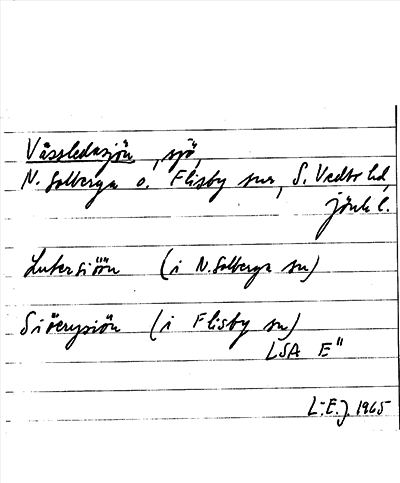 Vässledasjön, sjö,
N. Solberga o. Flisby snr, S. Vedbo hd,
Jönk l.
Lutersiöön (i N. Solberga sn)
Siöerysiön (i Flisby sn)
LSA E"
L-E. J. 1965